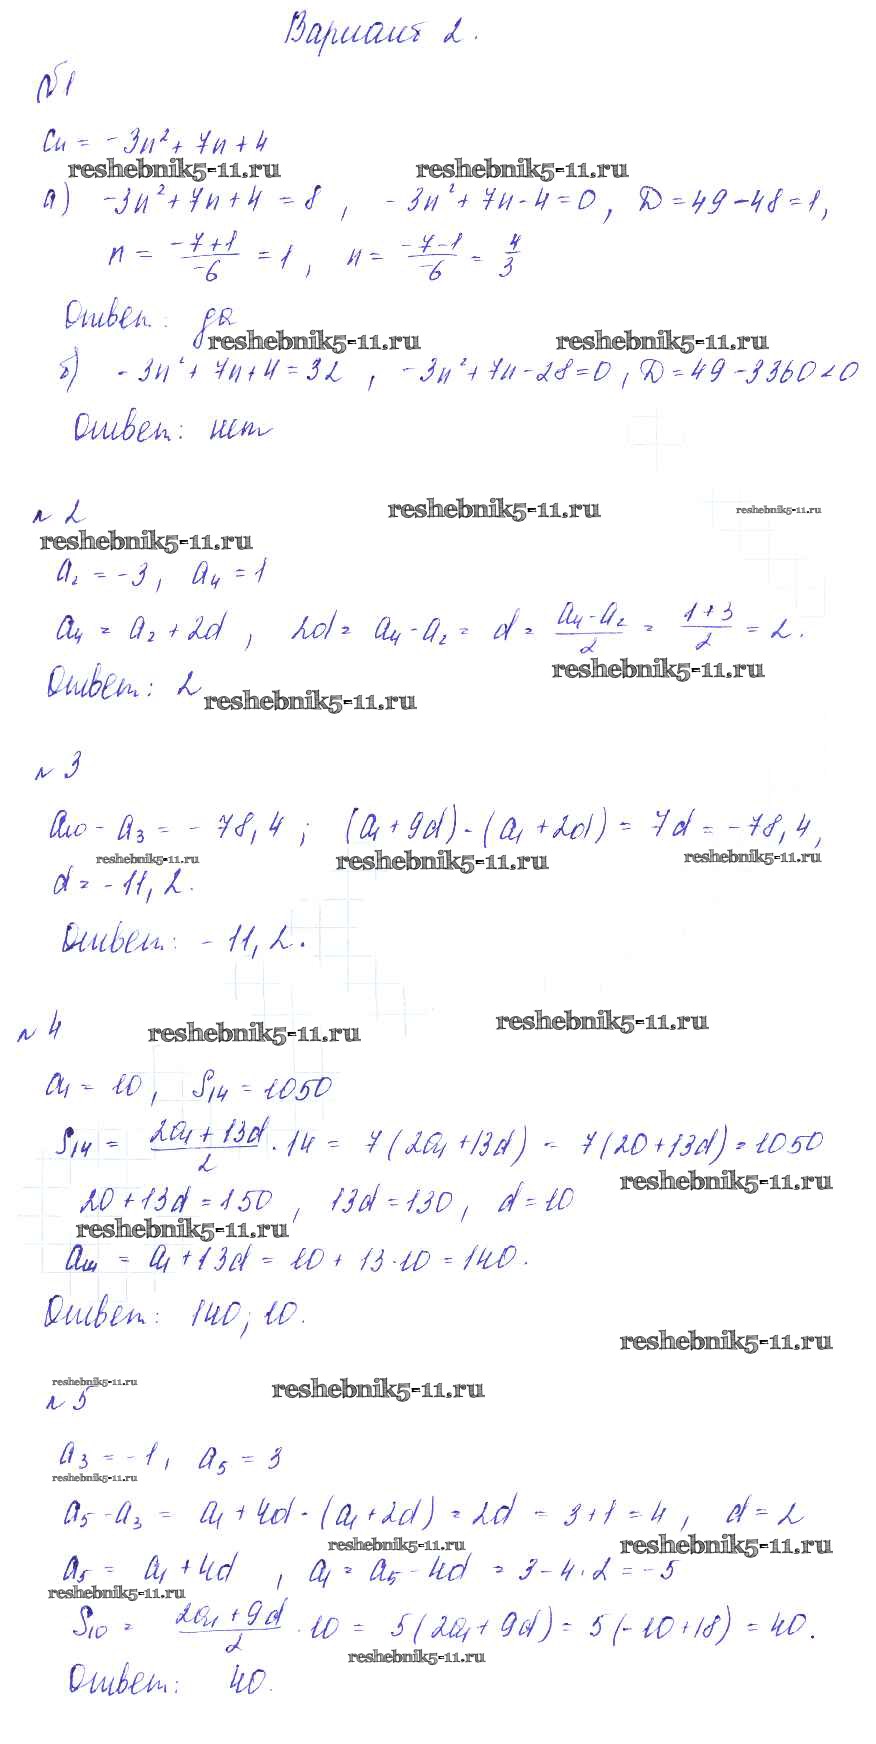 Вариант 2.
№1
Cn = -3n² + 7n + 4
reshebnik5-11.ru reshebnik5-11.ru
а) -3n² + 7n + 4 = 8, -3n² + 7n - 4 = 0, D = 49 - 48 = 1,
n = (-7+1)/(-6) = 1, n = (-7-1)/(-6) = 4/3
Ответ: да
reshebnik5-11.ru reshebnik5-11.ru
б) -3n² + 7n + 4 = 32, -3n² + 7n - 28 = 0, D = 49 - 3360 < 0
Ответ: нет
reshebnik5-11.ru reshebnik5-11.ru
№ 2
reshebnik5-11.ru
a₂ = -3, a₄ = 1
a₄ = a₂ + 2d, 2d = a₄ - a₂ = d = (a₄ - a₂)/2 = (1+3)/2 = 2.
reshebnik5-11.ru
Ответ: 2
reshebnik5-11.ru
№ 3
a₁₀ - a₃ = -78,4; (a₁ + 9d) - (a₁ + 2d) = 7d = -78,4,
reshebnik5-11.ru reshebnik5-11.ru reshebnik5-11.ru
d = -11,2.
Ответ: -11,2.
№ 4
reshebnik5-11.ru reshebnik5-11.ru
a₁ = 10, S₁₄ = 1050
S₁₄ = (2a₁ + 13d)/2 · 14 = 7(2a₁ + 13d) = 7(20 + 13d) = 1050
reshebnik5-11.ru
20 + 13d = 150, 13d = 130, d = 10
reshebnik5-11.ru
a₁₄ = a₁ + 13d = 10 + 13·10 = 140.
Ответ: 140; 10.
reshebnik5-11.ru
reshebnik5-11.ru reshebnik5-11.ru
№ 5
a₃ = -1, a₅ = 3
reshebnik5-11.ru
a₅ - a₃ = a₁ + 4d - (a₁ + 2d) = 2d = 3 + 1 = 4, d = 2
reshebnik5-11.ru reshebnik5-11.ru
a₅ = a₁ + 4d, a₁ = a₅ - 4d = 3 - 4·2 = -5
reshebnik5-11.ru
S₁₀ = (2a₁ + 9d)/2 · 10 = 5(2a₁ + 9d) = 5(-10 + 18) = 40.
reshebnik5-11.ru
Ответ: 40.